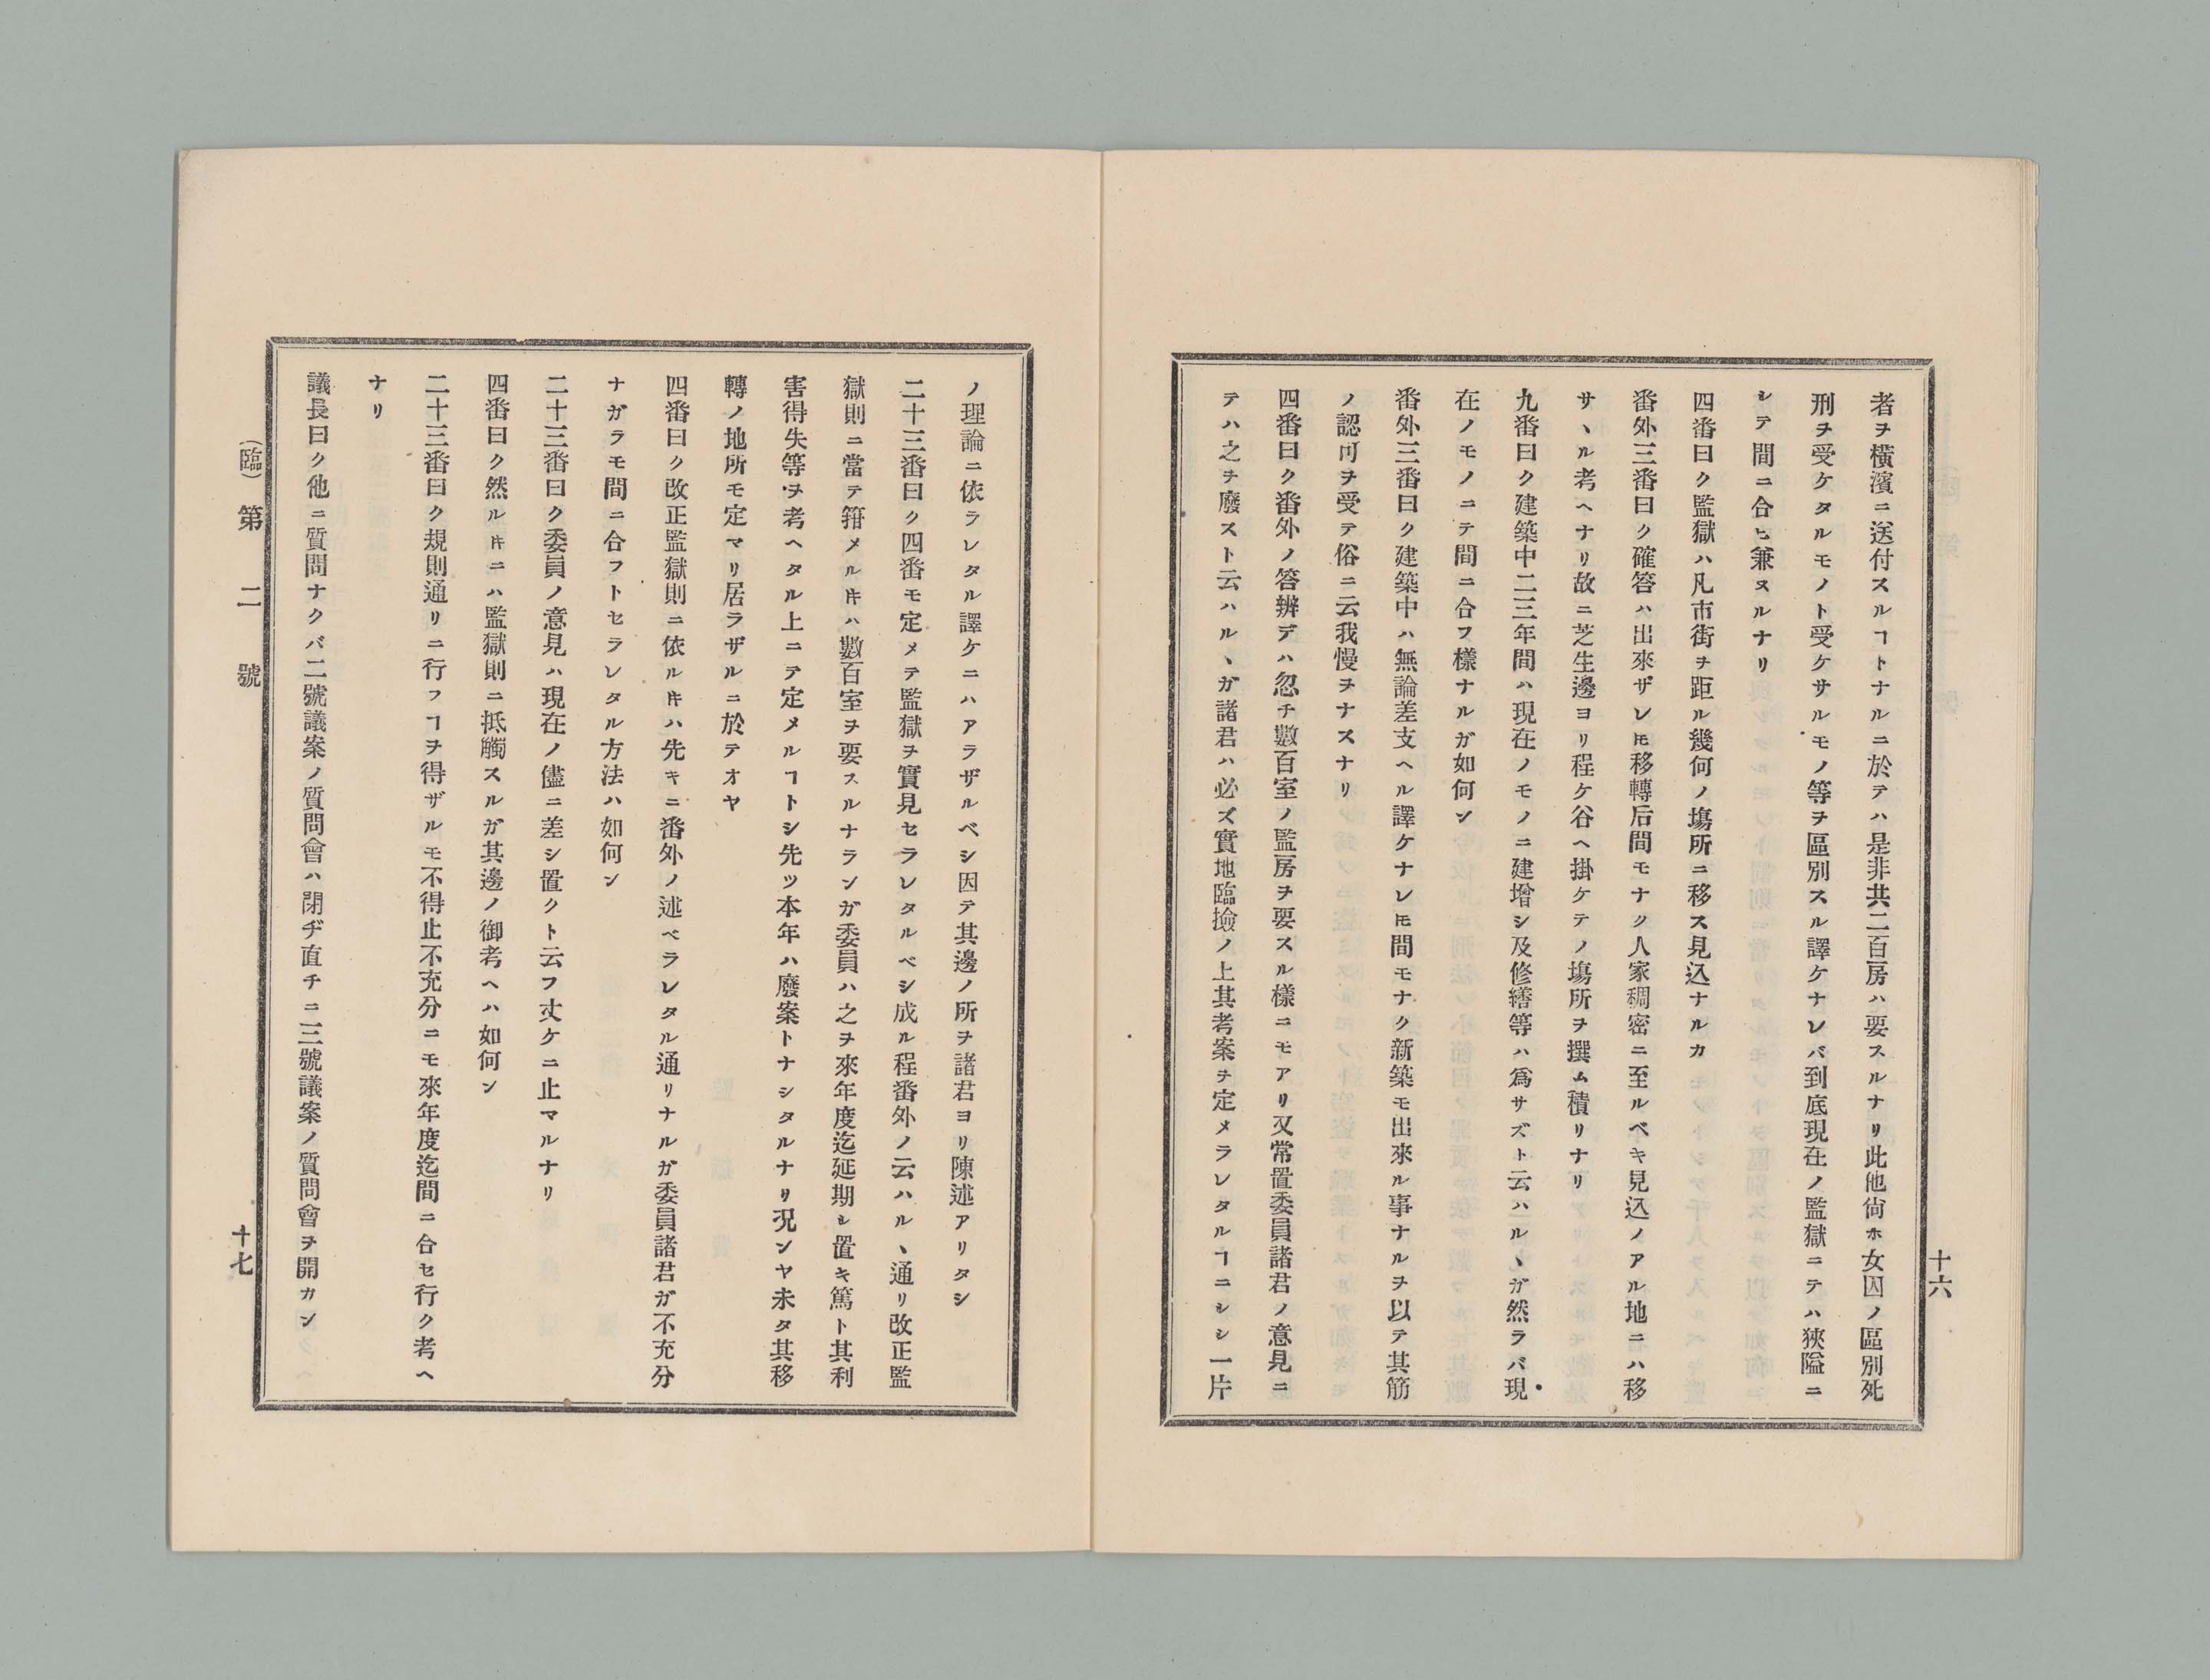 十六
者ヲ橫濱ニ送付スルヿトナルニ於テハ是非共二百房ハ要スルナリ此他尙ホ女囚ノ區別死
刑ヲ受ケタルモノト受ケサルモノ等ヲ區別スル譯ケナレバ到底現在ノ監獄ニテハ狹隘ニ
シテ間ニ合ヒ兼ヌルナリ
四番曰ク監獄ハ凡市街ヲ距ル幾何ノ塲所ニ移ス見込ナルカ
番外三番曰ク確答ハ出來ザレ𪜈移轉后間モナク人家稠密ニ至ルベキ見込ノアル地ニハ移
サヽル考ヘナリ故ニ芝生邊ヨリ程ケ谷ヘ掛ケテノ塲所ヲ撰ム積リナリ
九番曰ク建築中二三年間ハ現在ノモノニ建增シ及修繕等ハ爲サズト云ハルヽガ然ラバ現
在ノモノニテ間ニ合フ樣ナルガ如何ン
番外三番曰ク建築中ハ無論差支ヘル譯ケナレ𪜈間モナク新築モ出來ル事ナルヲ以テ其筋
ノ認可ヲ受テ俗ニ云我慢ヲナスナリ
四番曰ク番外ノ答辨デハ忽チ數百室ノ監房ヲ要スル樣ニモアリ又常置委員諸君ノ意見ニ
テハ之ヲ廢スト云ハルヽガ諸君ハ必ズ實地臨撿ノ上其考案ヲ定メラレタルヿニシシ一片
ノ理論ニ依ラレタル譯ケニハアラザルベシ因テ其邊ノ所ヲ諸君ヨリ陳述アリタシ
二十三番曰ク四番モ定メテ監獄ヲ實見セラレタルベシ成ル程番外ノ云ハルヽ通リ改正監
獄則ニ當テ箝メル 𪜈ハ數百室ヲ要スルナランガ委員ハ之ヲ來年度迄延期シ置キ篤ト其利
害得失等ヲ考ヘタル上ニテ定メルヿトシ先ツ本年ハ廢案トナシタルナリ況ンヤ未タ其移
轉ノ地所モ定マリ居ラザルニ於テオヤ
四番曰ク改正監獄則ニ依ル𪜈ハ先キニ番外ノ述ベラレタル通リナルガ委員諸君ガ不充分
ナガラモ間ニ合フトセラレタル方法ハ如何ン
二十三番曰ク委員ノ意見ハ現在ノ儘ニ差シ置クト云フ丈ケニ止マルナリ
四番曰ク然ル𪜈ニハ監獄則ニ抵觸スルガ其邊ノ御考ヘハ如何ン
二十三番曰ク規則通リニ行フヿヲ得ザルモ不得止不充分ニモ來年度迄間ニ合セ行ク考ヘ
ナリ
議長曰ク他ニ質問ナクバ二號議案ノ質問會ハ閉ヂ直チニ三號議案ノ質問會ヲ開カン
（臨）第二號
十七